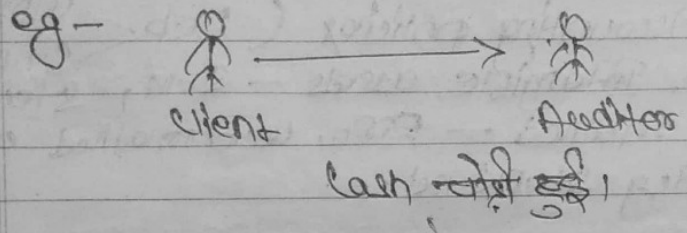 eg -
Client Auditor
Cash चोरी हुई।